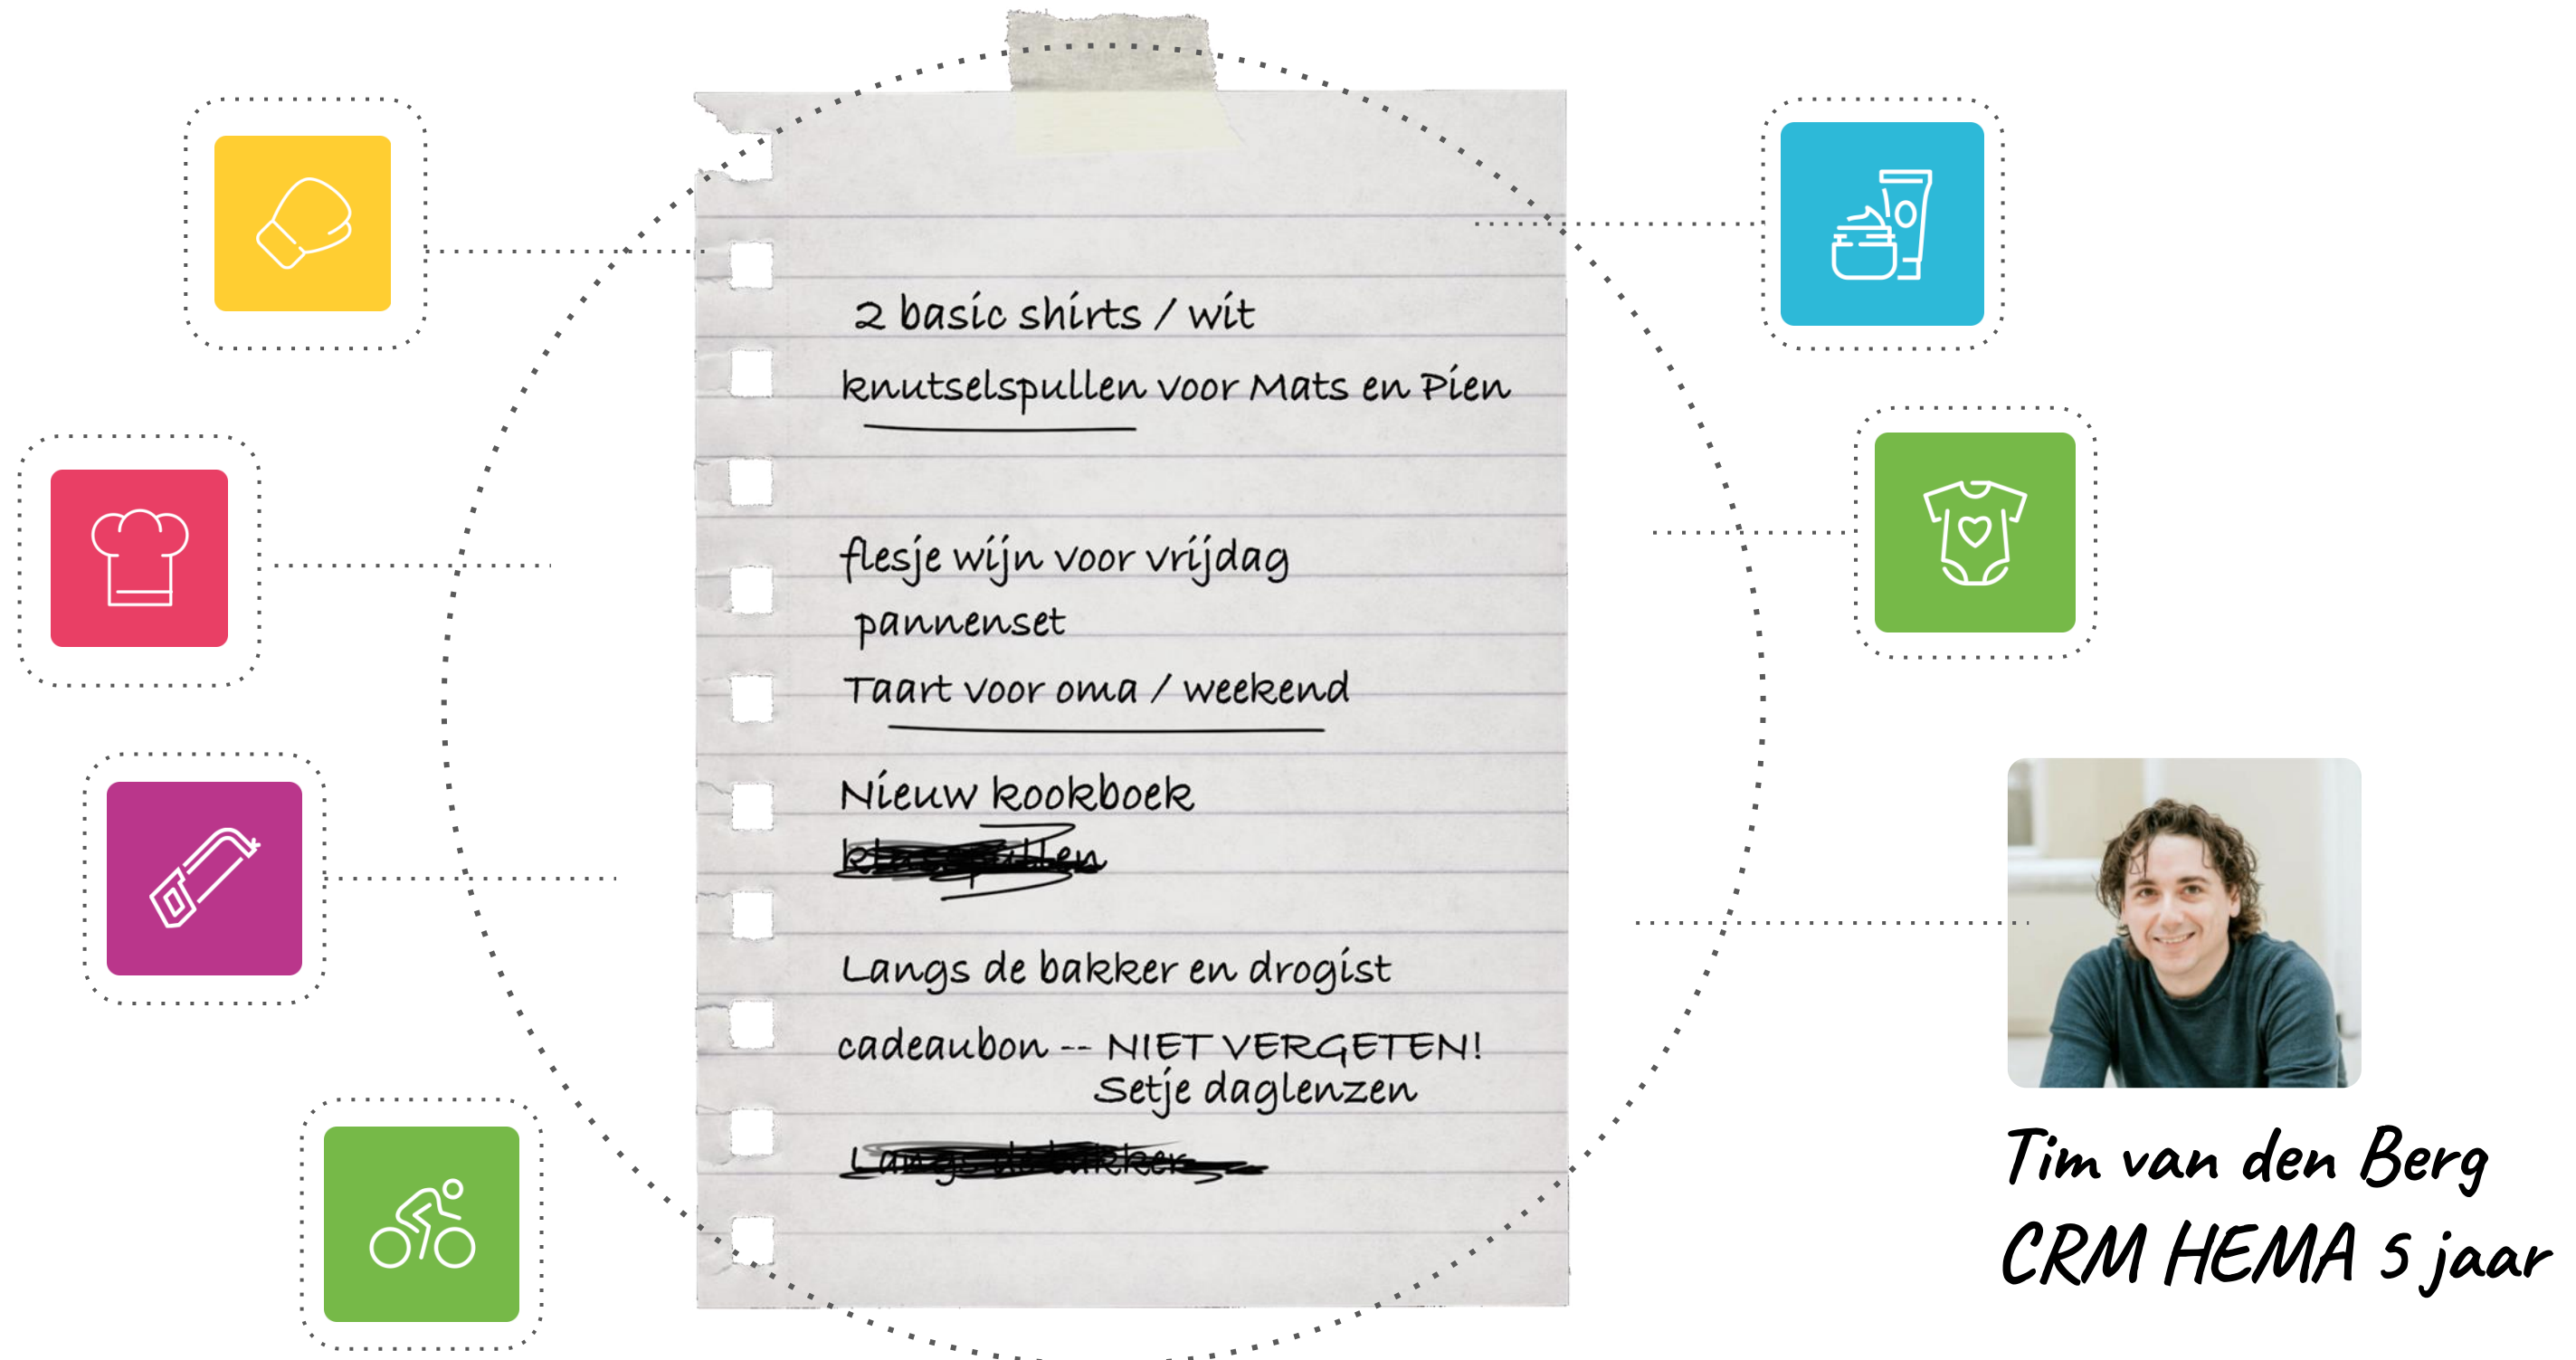 2 basic shirts / wit
knutselspullen voor Mats en Pien
flesje wijn voor vrijdag
pannenset
Taart voor oma / weekend
Nieuw kookboek
Langs de bakker en drogist
cadeaubon -- NIET VERGETEN!
Setje daglenzen
Langs de bakker
Tim van den Berg
CRM HEMA 5 jaar